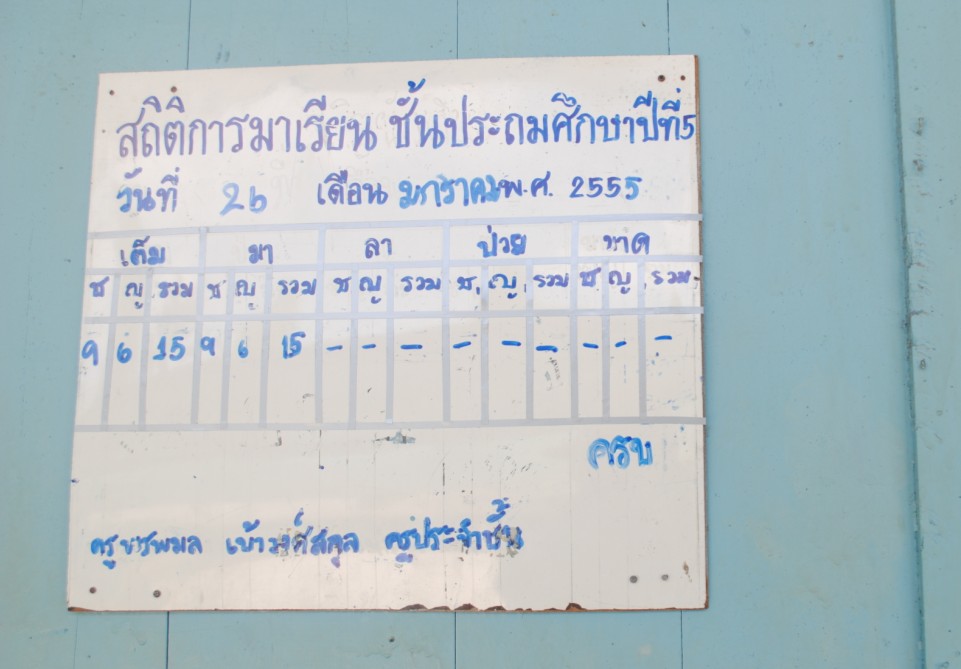 สถิติการมาเรียน ชั้นประถมศึกษาปีที่5
วันที่ 26 เดือน มกราคม พ.ศ. 2555
เต็ม มา ลา ป่วย ขาด
ช ญ รวม ช ญ รวม ช ญ รวม ช. ญ. รวม ช ญ รวม
9 6 15 9 6 15 - - - - - - - - -
ครบ
ครู ครูประจำชั้น